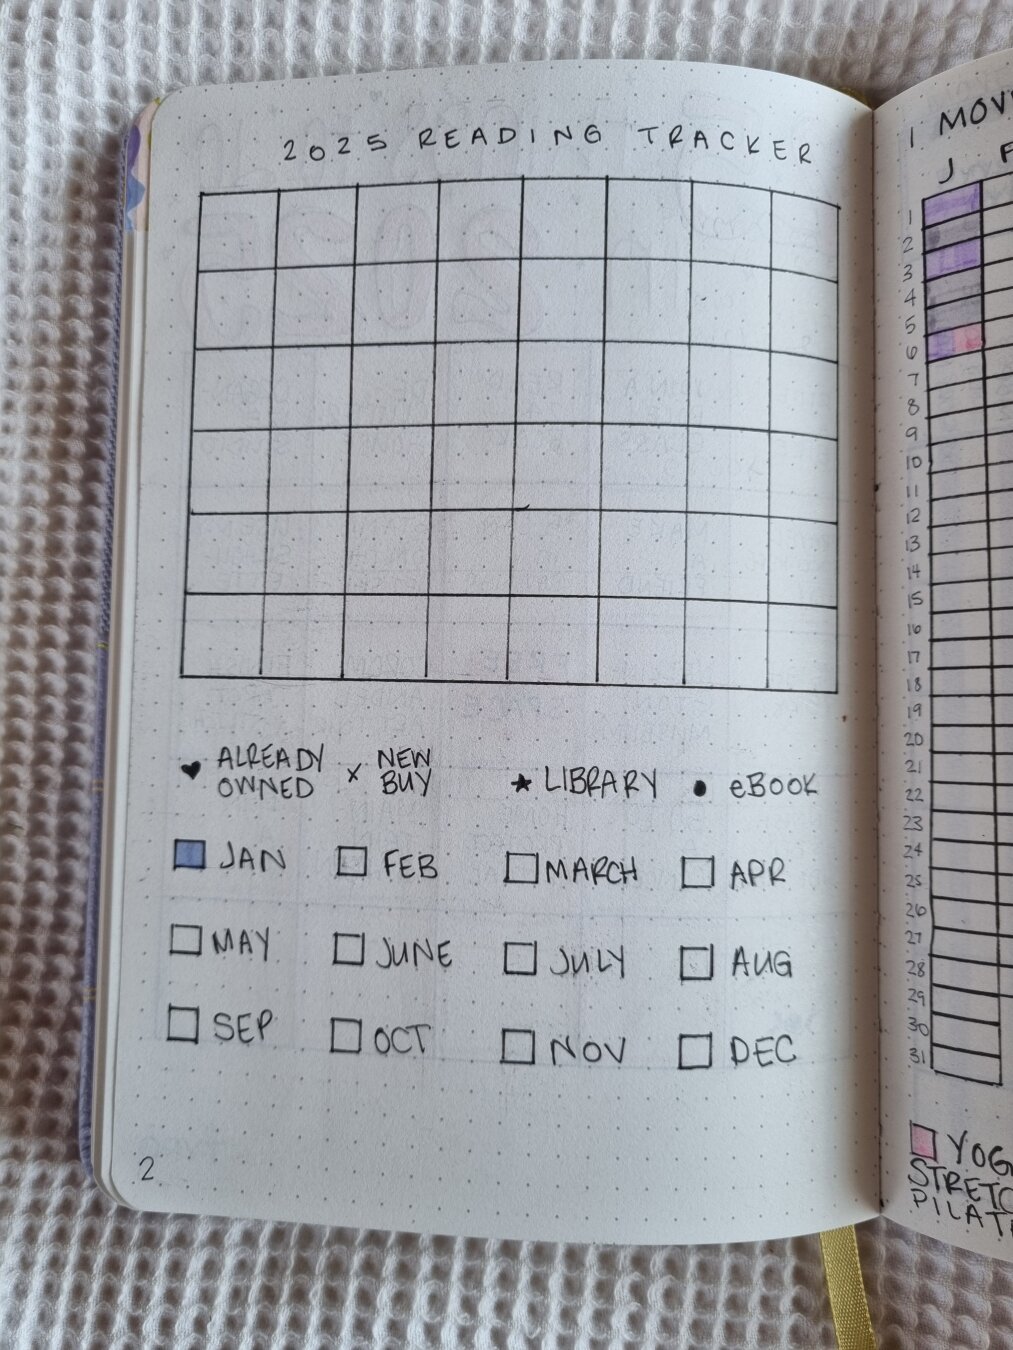 2025 READING TRACKER
♥ ALREADY OWNED
x NEW BUY
★ LIBRARY
● eBOOK
JAN
FEB
MARCH
APR
MAY
JUNE
JULY
AUG
SEP
OCT
NOV
DEC
2
J
1
2
3
4
5
6
7
8
9
10
11
12
13
14
15
16
17
18
19
20
21
22
23
24
25
26
27
28
29
30
31